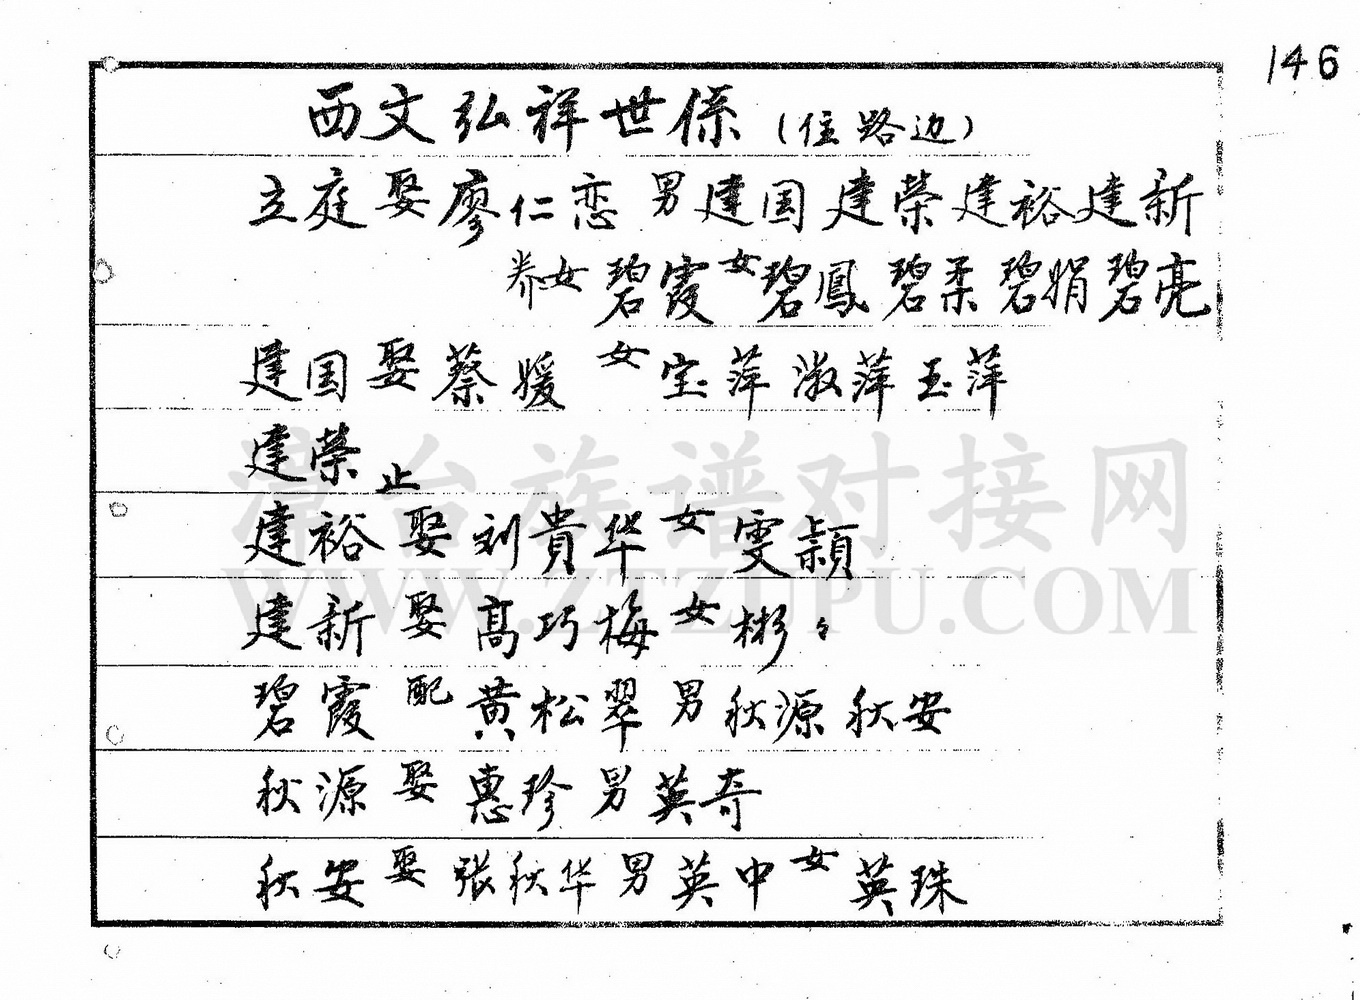 146
西文弘祥世係(住路边)
立庭娶廖仁恋男建国建荣建裕建新
养女碧霞女碧鳳碧柔碧娟碧亮
建国娶蔡媛女宝萍溦萍玉萍
建荣止
建裕娶刘貴华女雯頴
建新娶髙巧梅女彬々
碧霞配黄松翠男秋源秋安
秋源娶惠珍男英奇
秋安娶张秋华男英中女英珠
漳台族谱对接网
WWW.ZTZUPU.COM